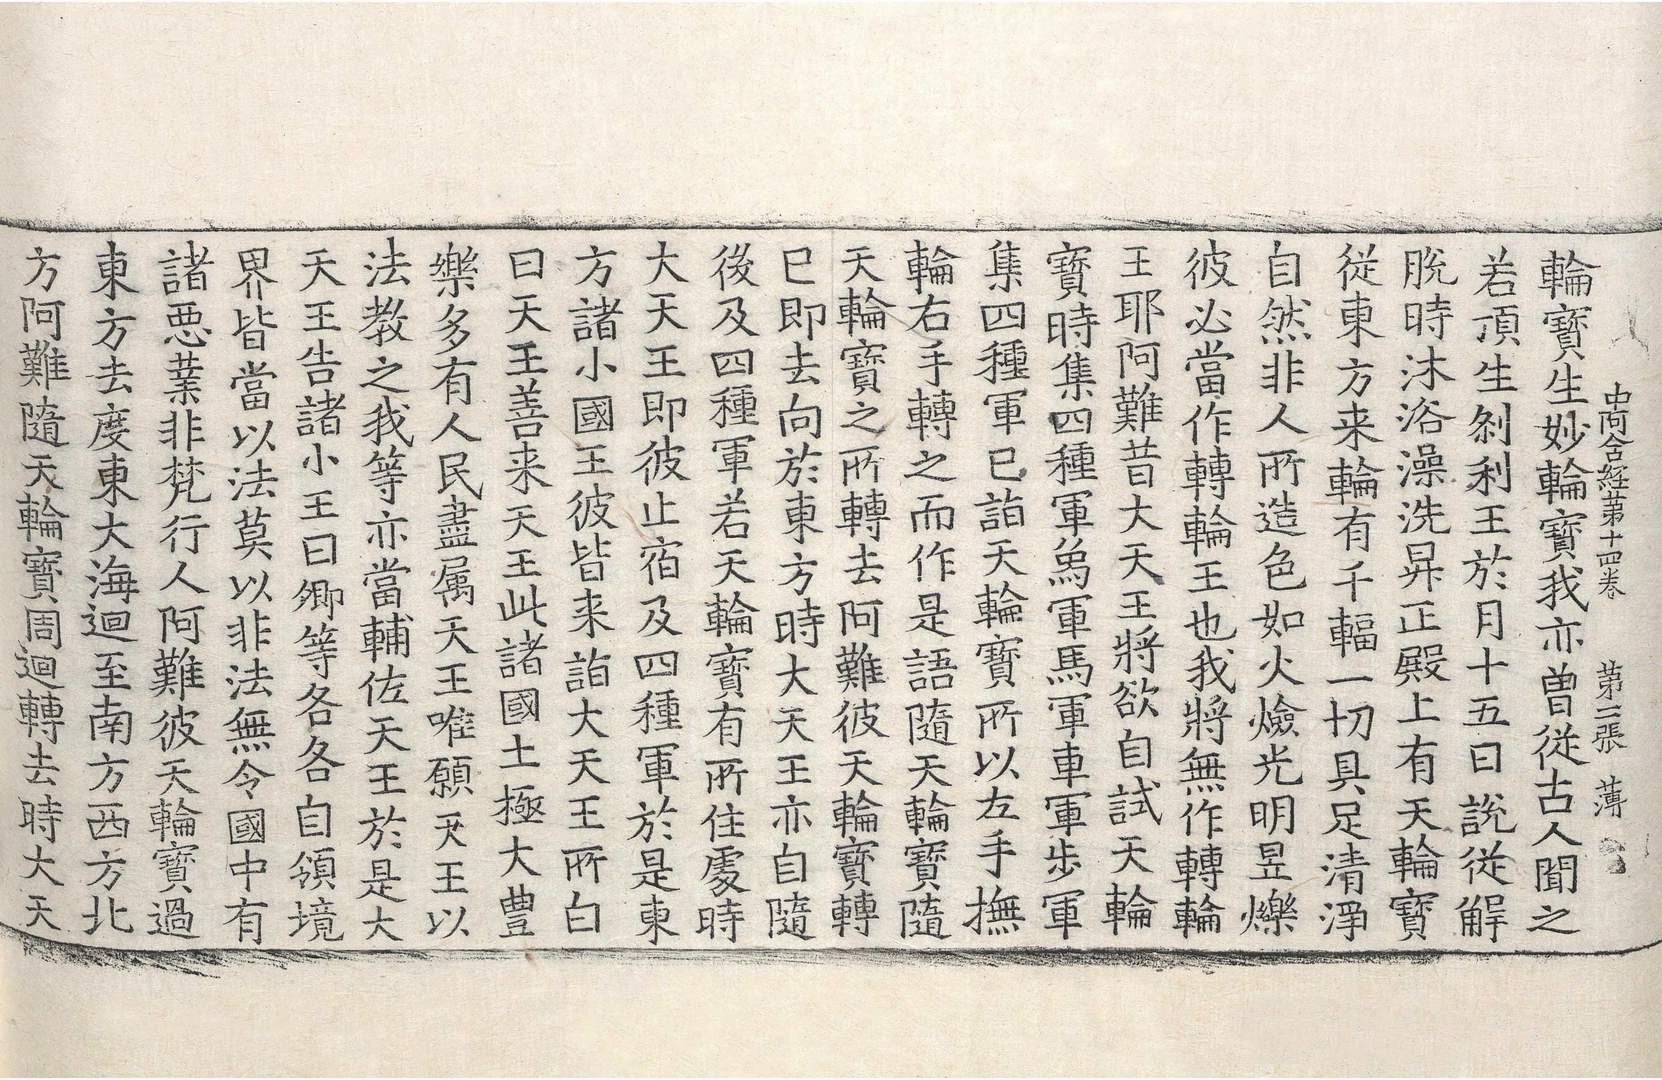 中阿含經苐十四卷 第二張 薄
輪寶生妙輪寶我亦曽從古人聞之
若頂生刹利王於月十五日說從解
脫時沐浴澡洗昇正殿上有天輪寶
從東方来輪有千輻一切具足清淨
自然非人所造色如火燄光明昱爍
彼必當作轉輪王也我將無作轉輪
王耶阿難昔大天王將欲自試天輪
寶時集四種軍象軍馬軍車軍步軍
集四種軍已詣天輪寶所以左手撫
輪右手轉之而作是語隨天輪寶隨
天輪寶之所轉去阿難彼天輪寶轉
已即去向於東方時大天王亦自隨
後及四種軍若天輪寶有所住處時
大天王即彼止宿及四種軍於是東
方諸小國王彼皆来詣大天王所白
曰天王善来天王此諸國土極大豊
樂多有人民盡属天王唯願天王以
法教之我等亦當輔佐天王於是大
天王告諸小王曰卿等各各自領境
界皆當以法莫以非法無令國中有
諸惡業非梵行人阿難彼天輪寶過
東方去度東大海迴至南方西方北
方阿難隨天輪寶周迴轉去時大天